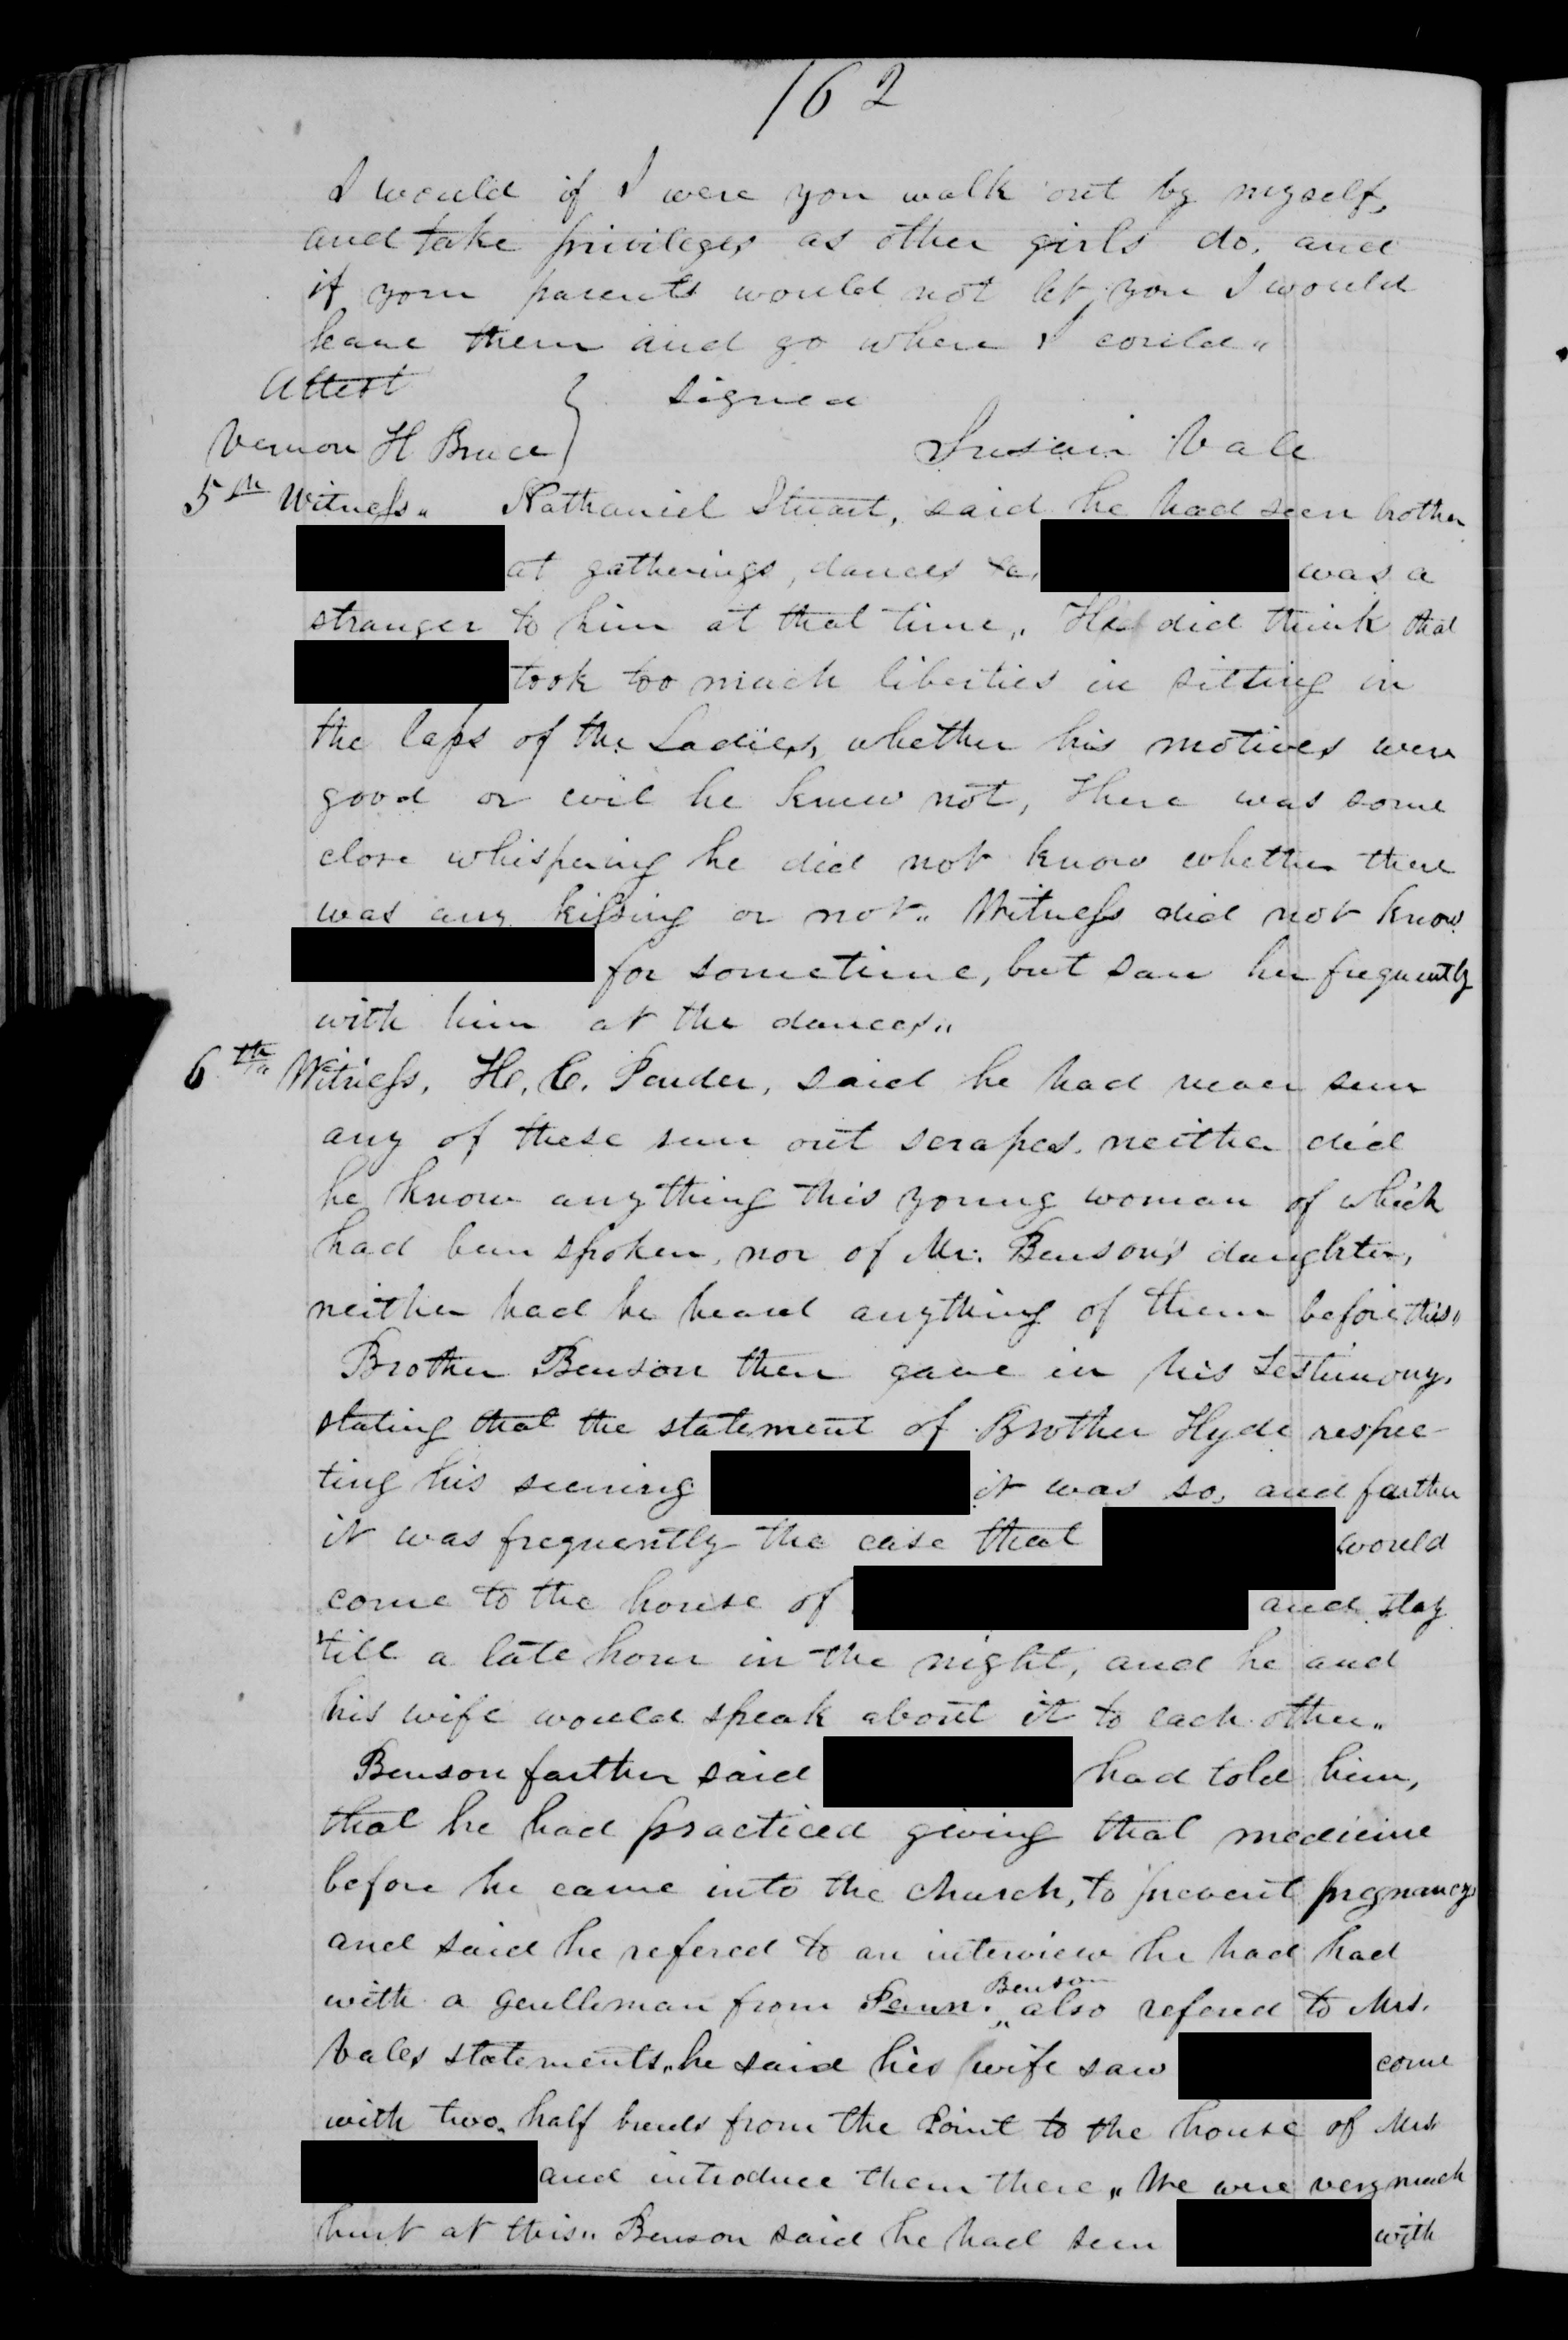 162
I would if I were you walk out by myself,
and take privileges as other girls do, and
if your parents would not let you I would
leave them and go where I could"
Attest } signed
Vernon H Bruce Susain Vale
5th Witness" Nathaniel Stuart, said he had seen brother
at gatherings, dances &c, was a
stranger to him at that time,. He did think that
took too much liberties in sitting in
the laps of the Ladies, whether his motives were
good or evil he knew not, There was some
close whispering he did not know whether there
was any kissing or not" Witness did not know
for sometime, but saw her frequently
with him at the dances"
6th Witness, H, C. Pender, said he had never seen
any of these run out scrapes, neither did
he know anything this young woman of which
had been spoken, nor of Mr. Benson's daughter,
neither had he heard anything of them before this"
Brother Benson then gave in his testimony,
stating that the statement of Brother Hyde respec-
ting his seeing it was so, and farther
it was frequently the case that would
come to the house of and stay
till a late hour in the night, and he and
his wife would speak about it to each other"
Benson farther said had told him,
that he had practiced giving that medicine
before he came into the church, to prevent pregnancy
and said he refered to an interview he had had
with a gentleman from Penn. Benson also refered to Mrs.
Vales statements, he said his wife saw come
with two half breeds from the Point to the house of Mrs
and introduce them there" We were very much
hurt at this" Benson said he had seen with